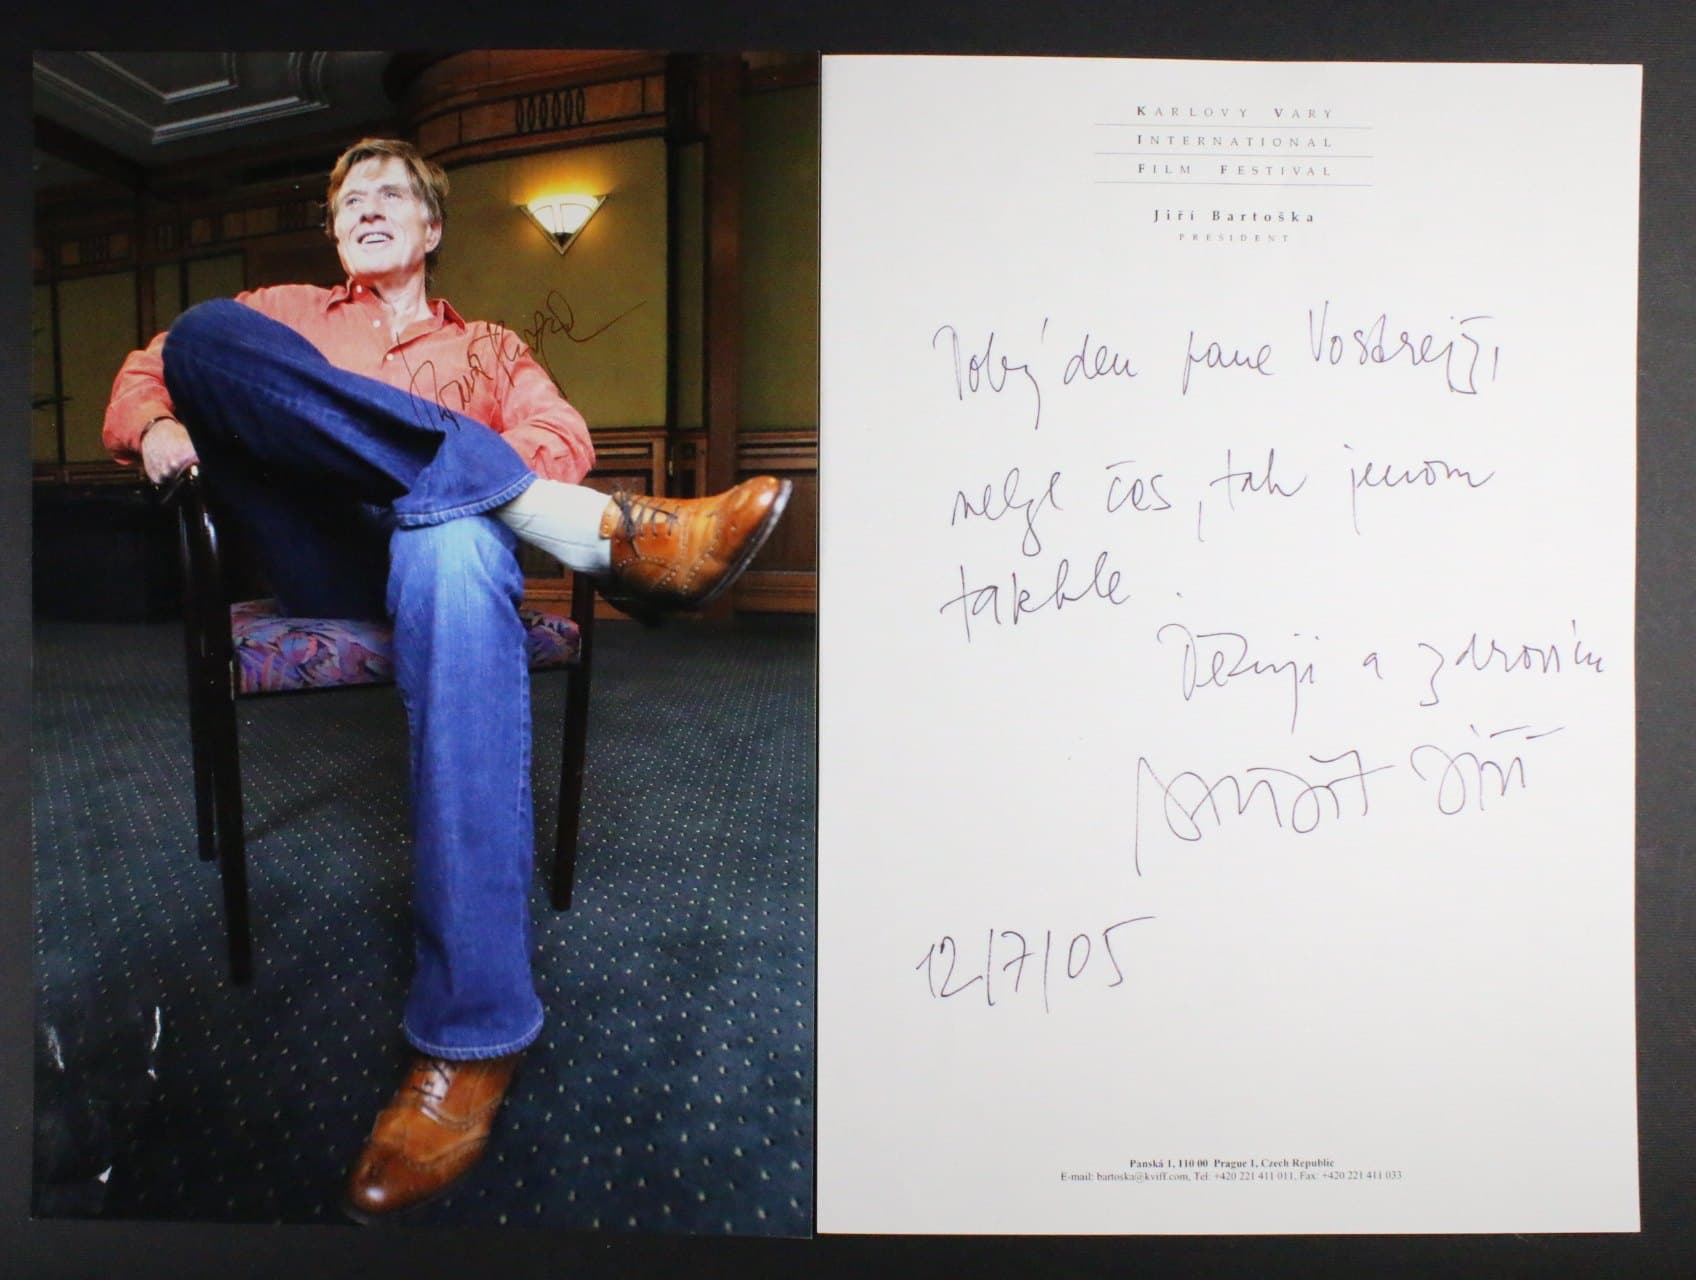 KARLOVY VARY
INTERNATIONAL
FILM FESTIVAL
Jiří Bartoška
PRESIDENT
Dobrý den pane Vostrejž,
nelze čas, tak jenom
takhle.
Děkuji a zdravím
Jiří
12/7/05
Panská 1, 110 00 Prague 1, Czech Republic
E-mail: bartoska@kviff.com, Tel: +420 221 411 011, Fax: +420 221 411 033